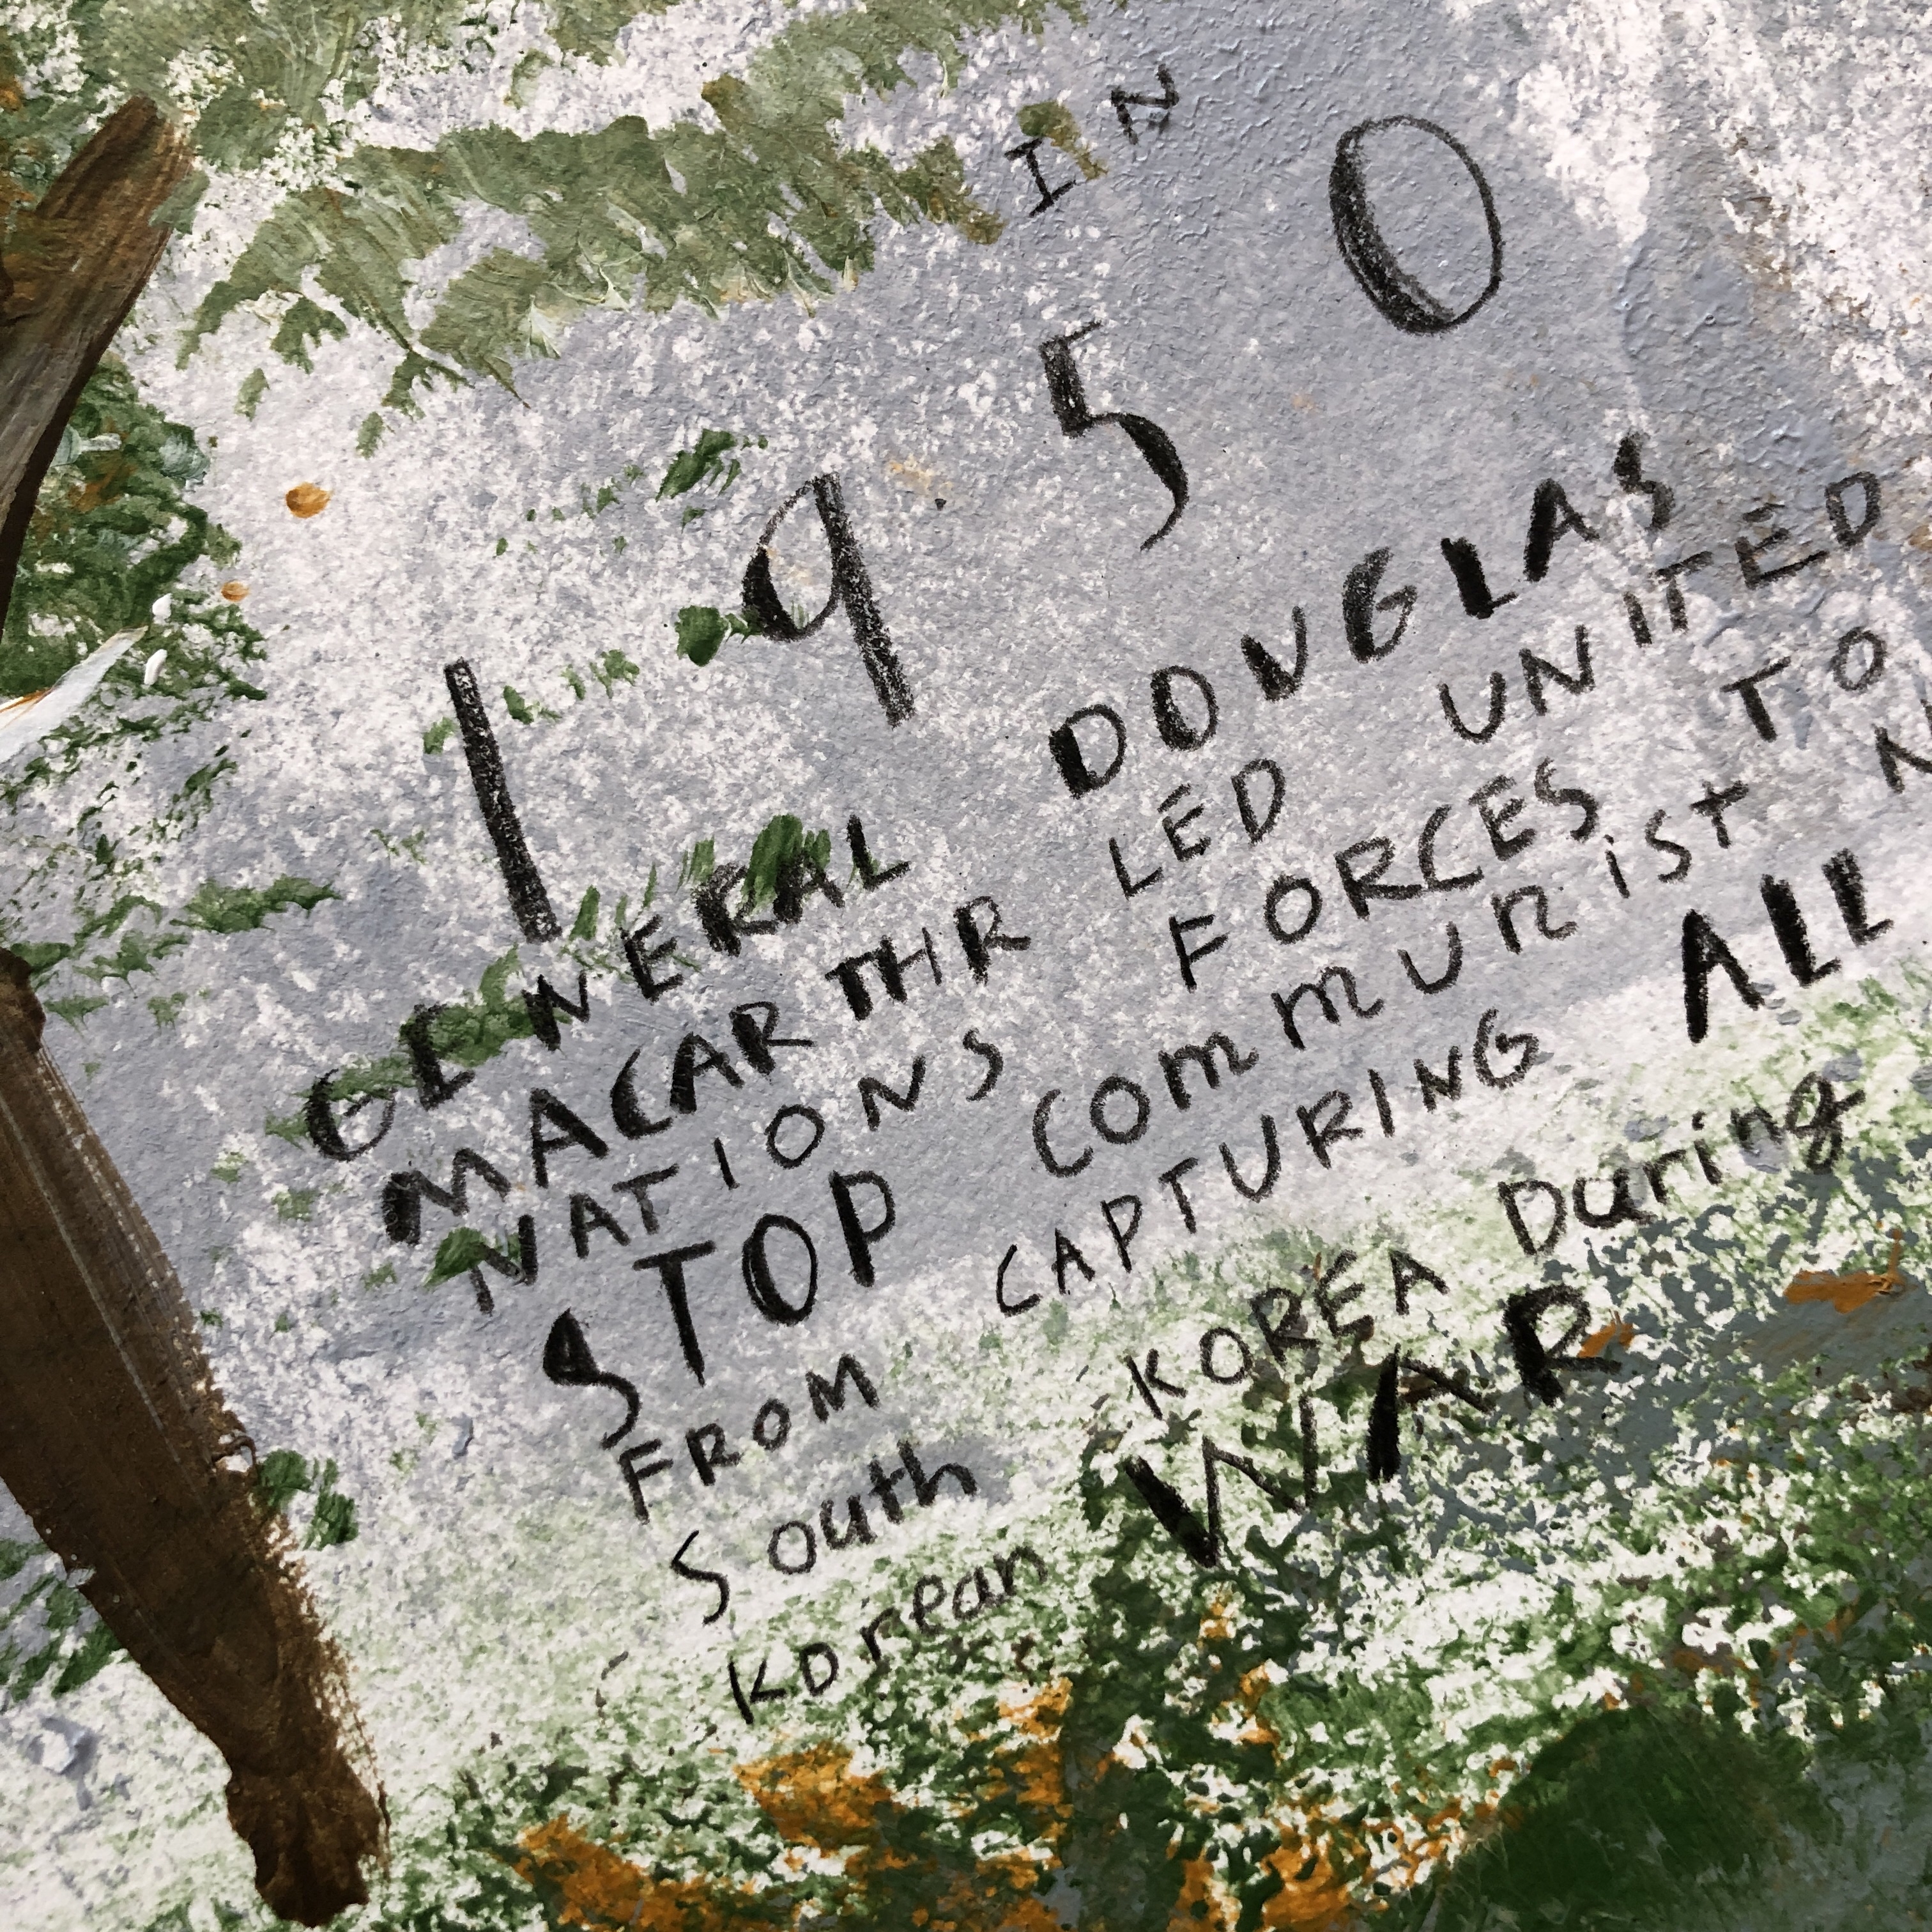 IN
1950
GENERAL DOUGLAS
MACARTHR LED UNITED
NATIONS FORCES TO
STOP communist
FROM CAPTURING ALL
South KOREA During
Korean WAR